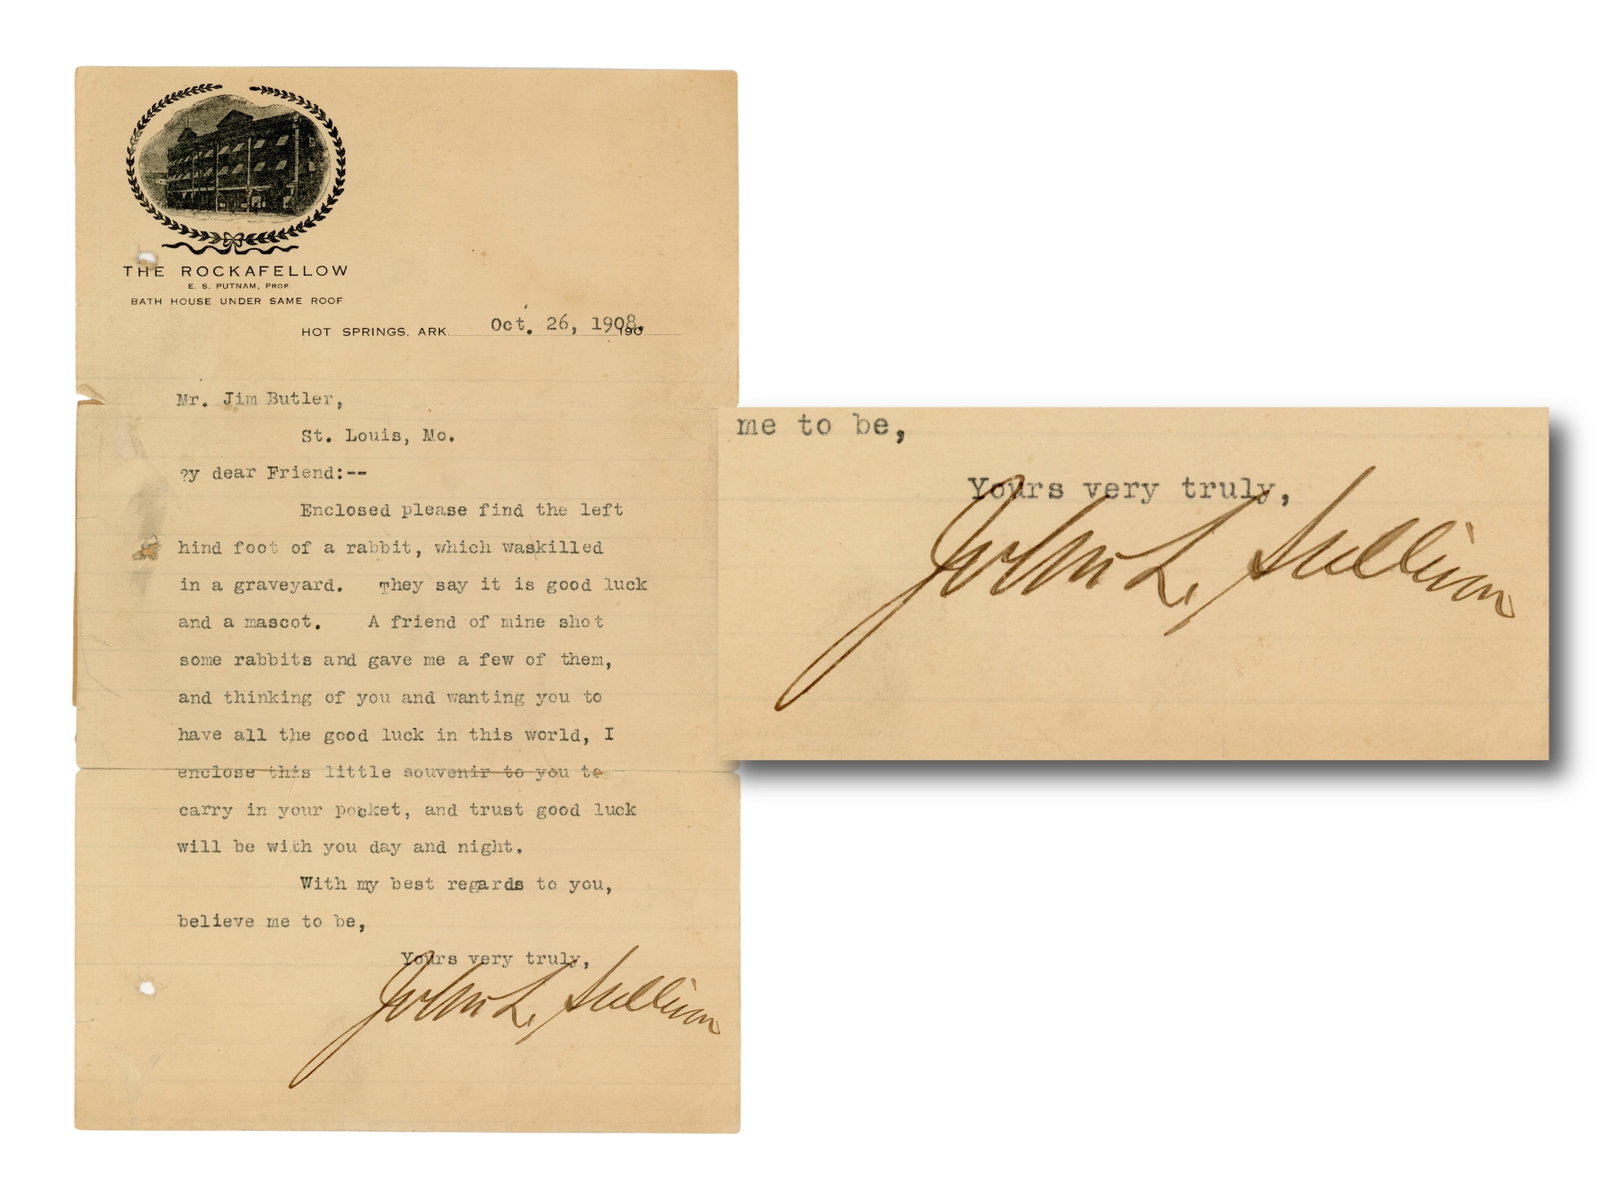 THE ROCKAFELLOW
E. S. PUTNAM, PROP.
BATH HOUSE UNDER SAME ROOF
HOT SPRINGS, ARK. Oct. 26, 1908. 190
Mr. Jim Butler,
St. Louis, Mo.
?y dear Friend:--
Enclosed please find the left
hind foot of a rabbit, which waskilled
in a graveyard. They say it is good luck
and a mascot. A friend of mine shot
some rabbits and gave me a few of them,
and thinking of you and wanting you to
have all the good luck in this world, I
enclose this little souvenir to you to
carry in your pocket, and trust good luck
will be with you day and night.
With my best regards to you,
believe me to be,
Yours very truly,
John L. Sullivan
me to be,
Yours very truly,
John L. Sullivan